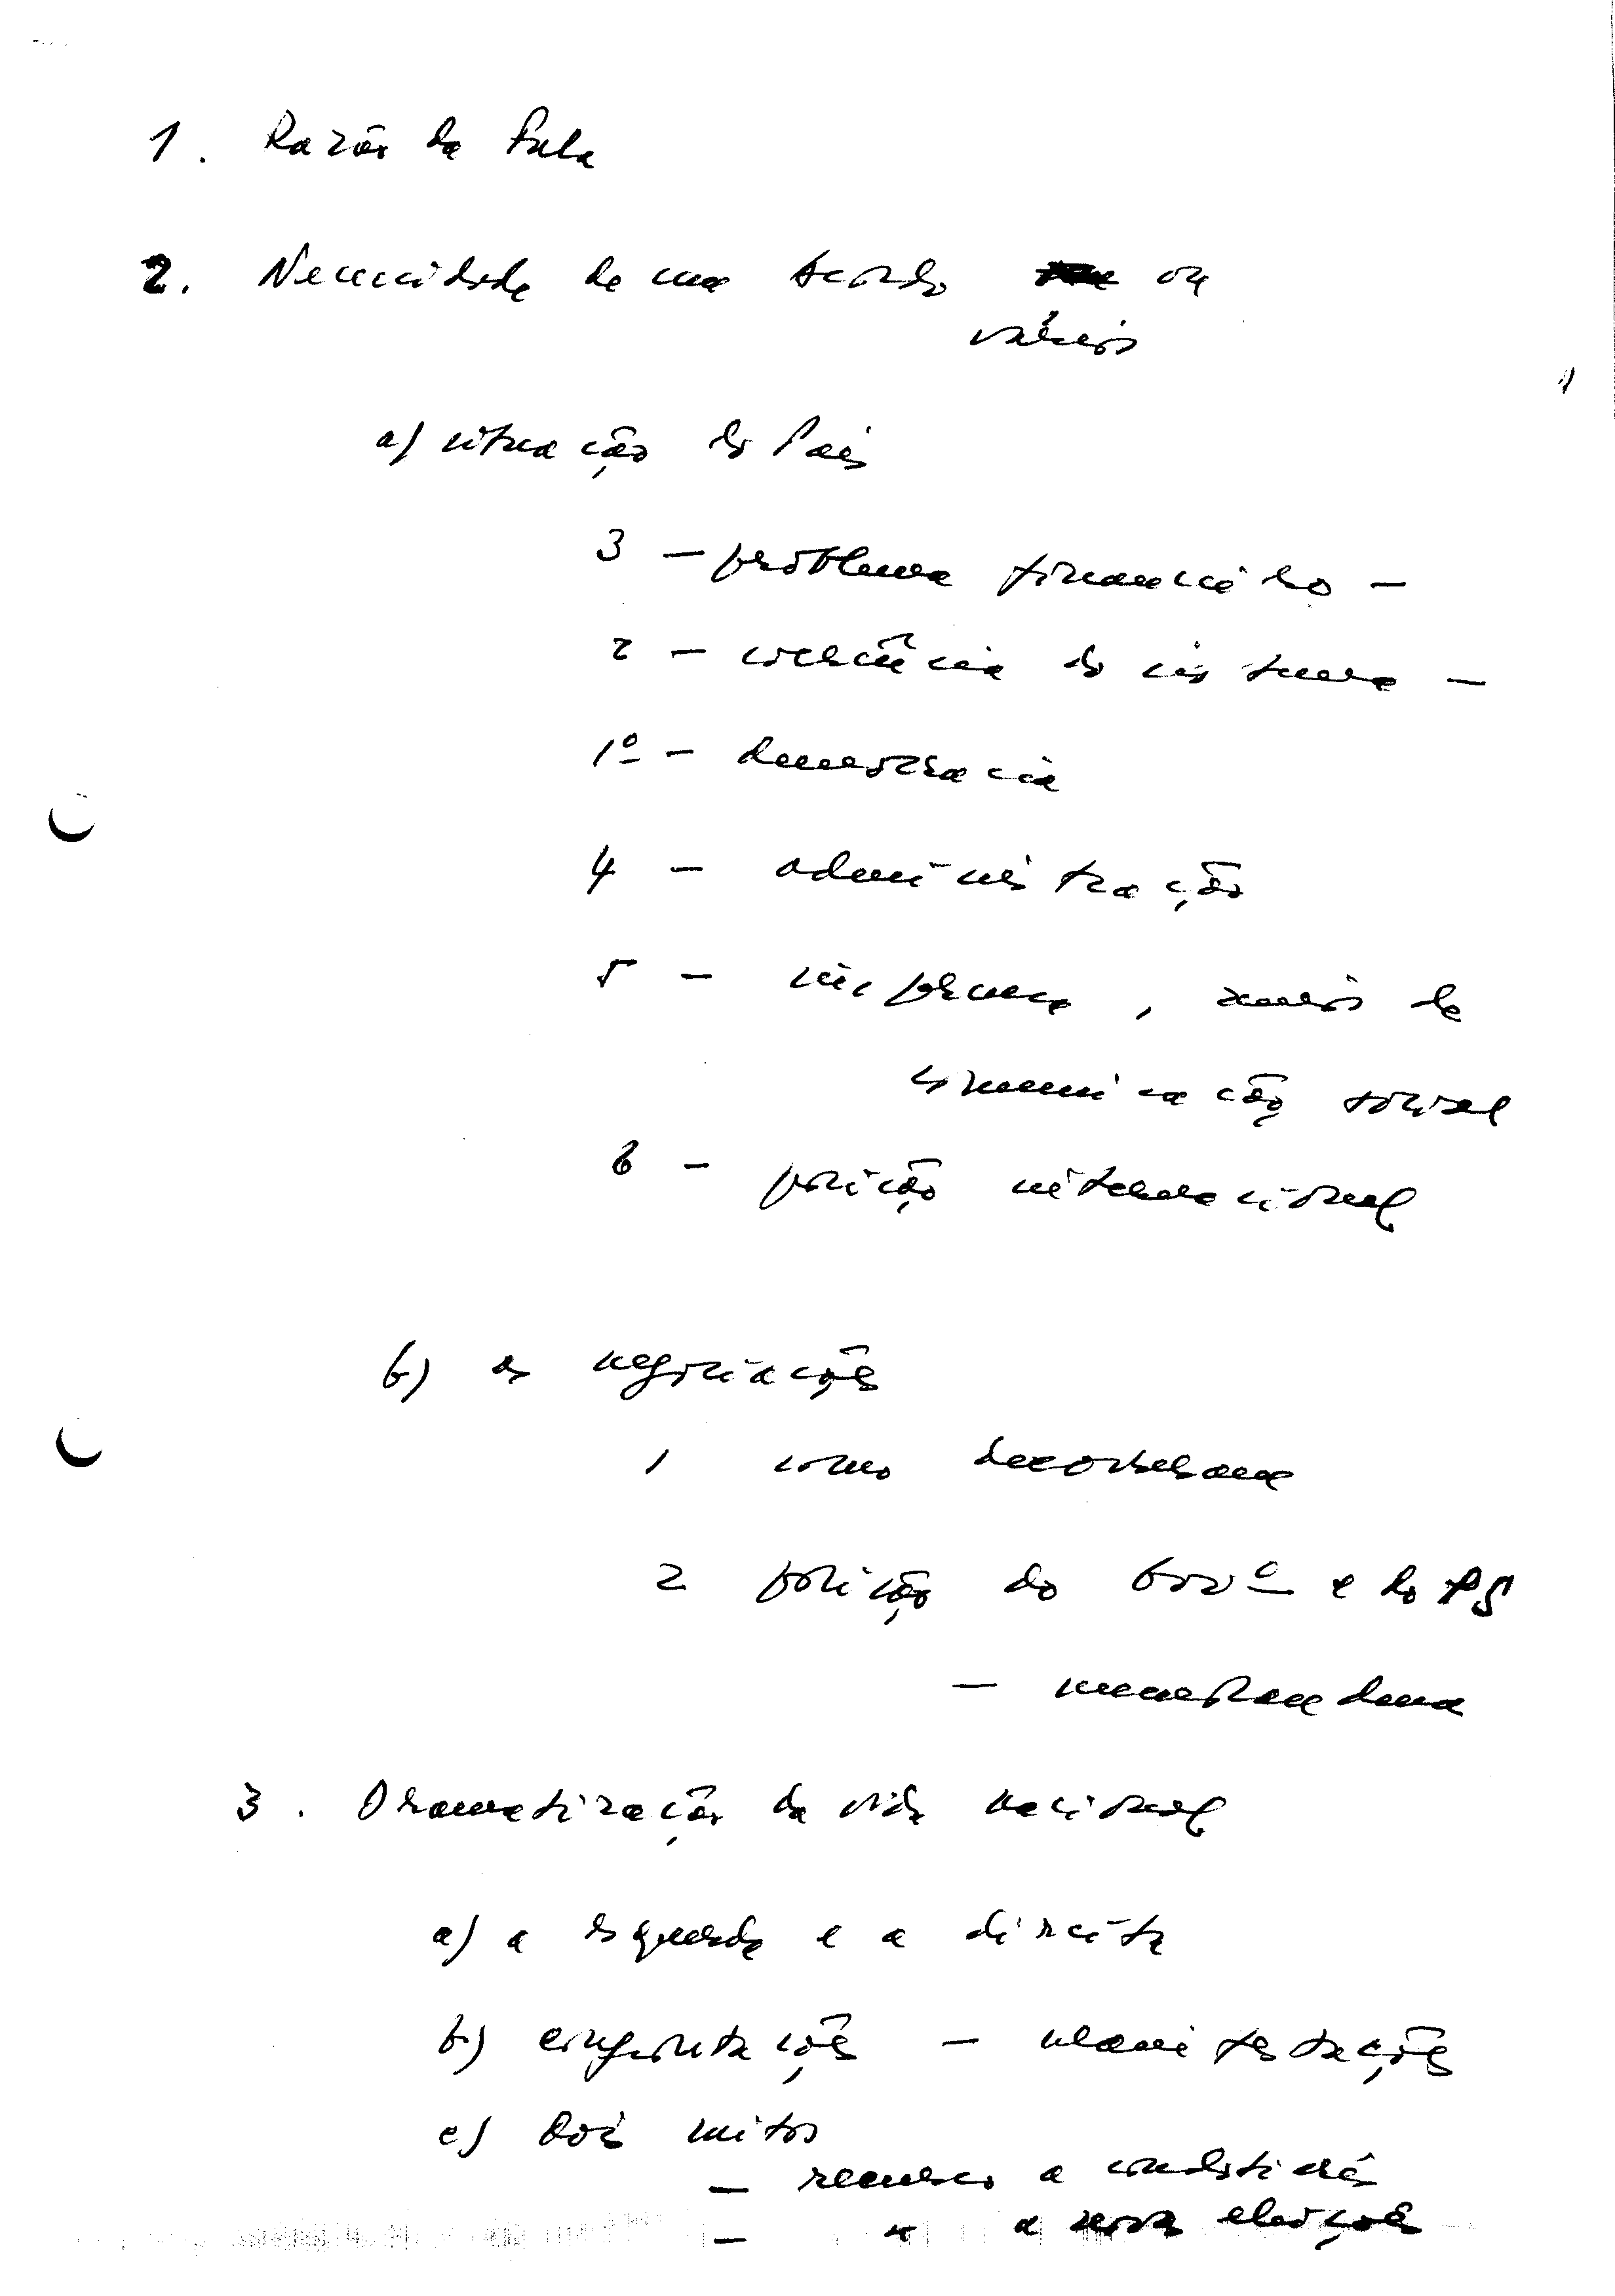 1. Razão da fala
2. Necessidade de um acordo ou
vários
a) situação do País
3 — problema financeiro —
2 — coerência do sistema —
1º — democracia
4 — administração
5 — imprensa, meios de
comunicação social
6 — posição internacional
b) as negociações
1 como decorreram
2 posição do Govº e do PS
— memorandum
3. Dramatização da vida nacional
a) a esquerda e a direita
b) confrontações — manifestações
c) Dois mitos
— recurso à
— " a novas eleições